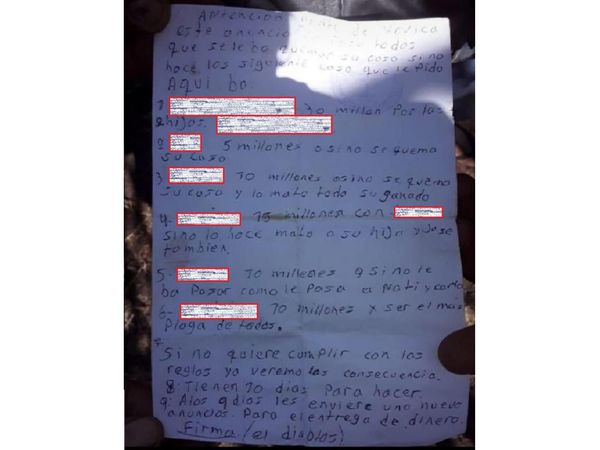 Atencion
este anuncio de indica
que se le ba quemar su casa si no
hace los siguiente cosa que le Pido
Aqui ba.
1. 10 millon Por las
2 hijas.
2- 5 millones o sino se quema
su casa
3. 10 millones osino se quema
su casa y lo mato todo su ganado
4. 15 millones con
sino lo hace mato a su hija y Jose
tombien.
5- 10 millones q Si no le
ba Pasar como le Pasa a Nati y
6- 10 millones x ser el mas
Plaga de todos.
7
Si no quiere cumplir con las
reglos ya veremo las consecuencia.
8: Tienen 10 dias Para hacer.
9: Alos 9 dias les enviere uno nuevo
anuncios. Para el entrega de dinero.
Firma (el diablos)